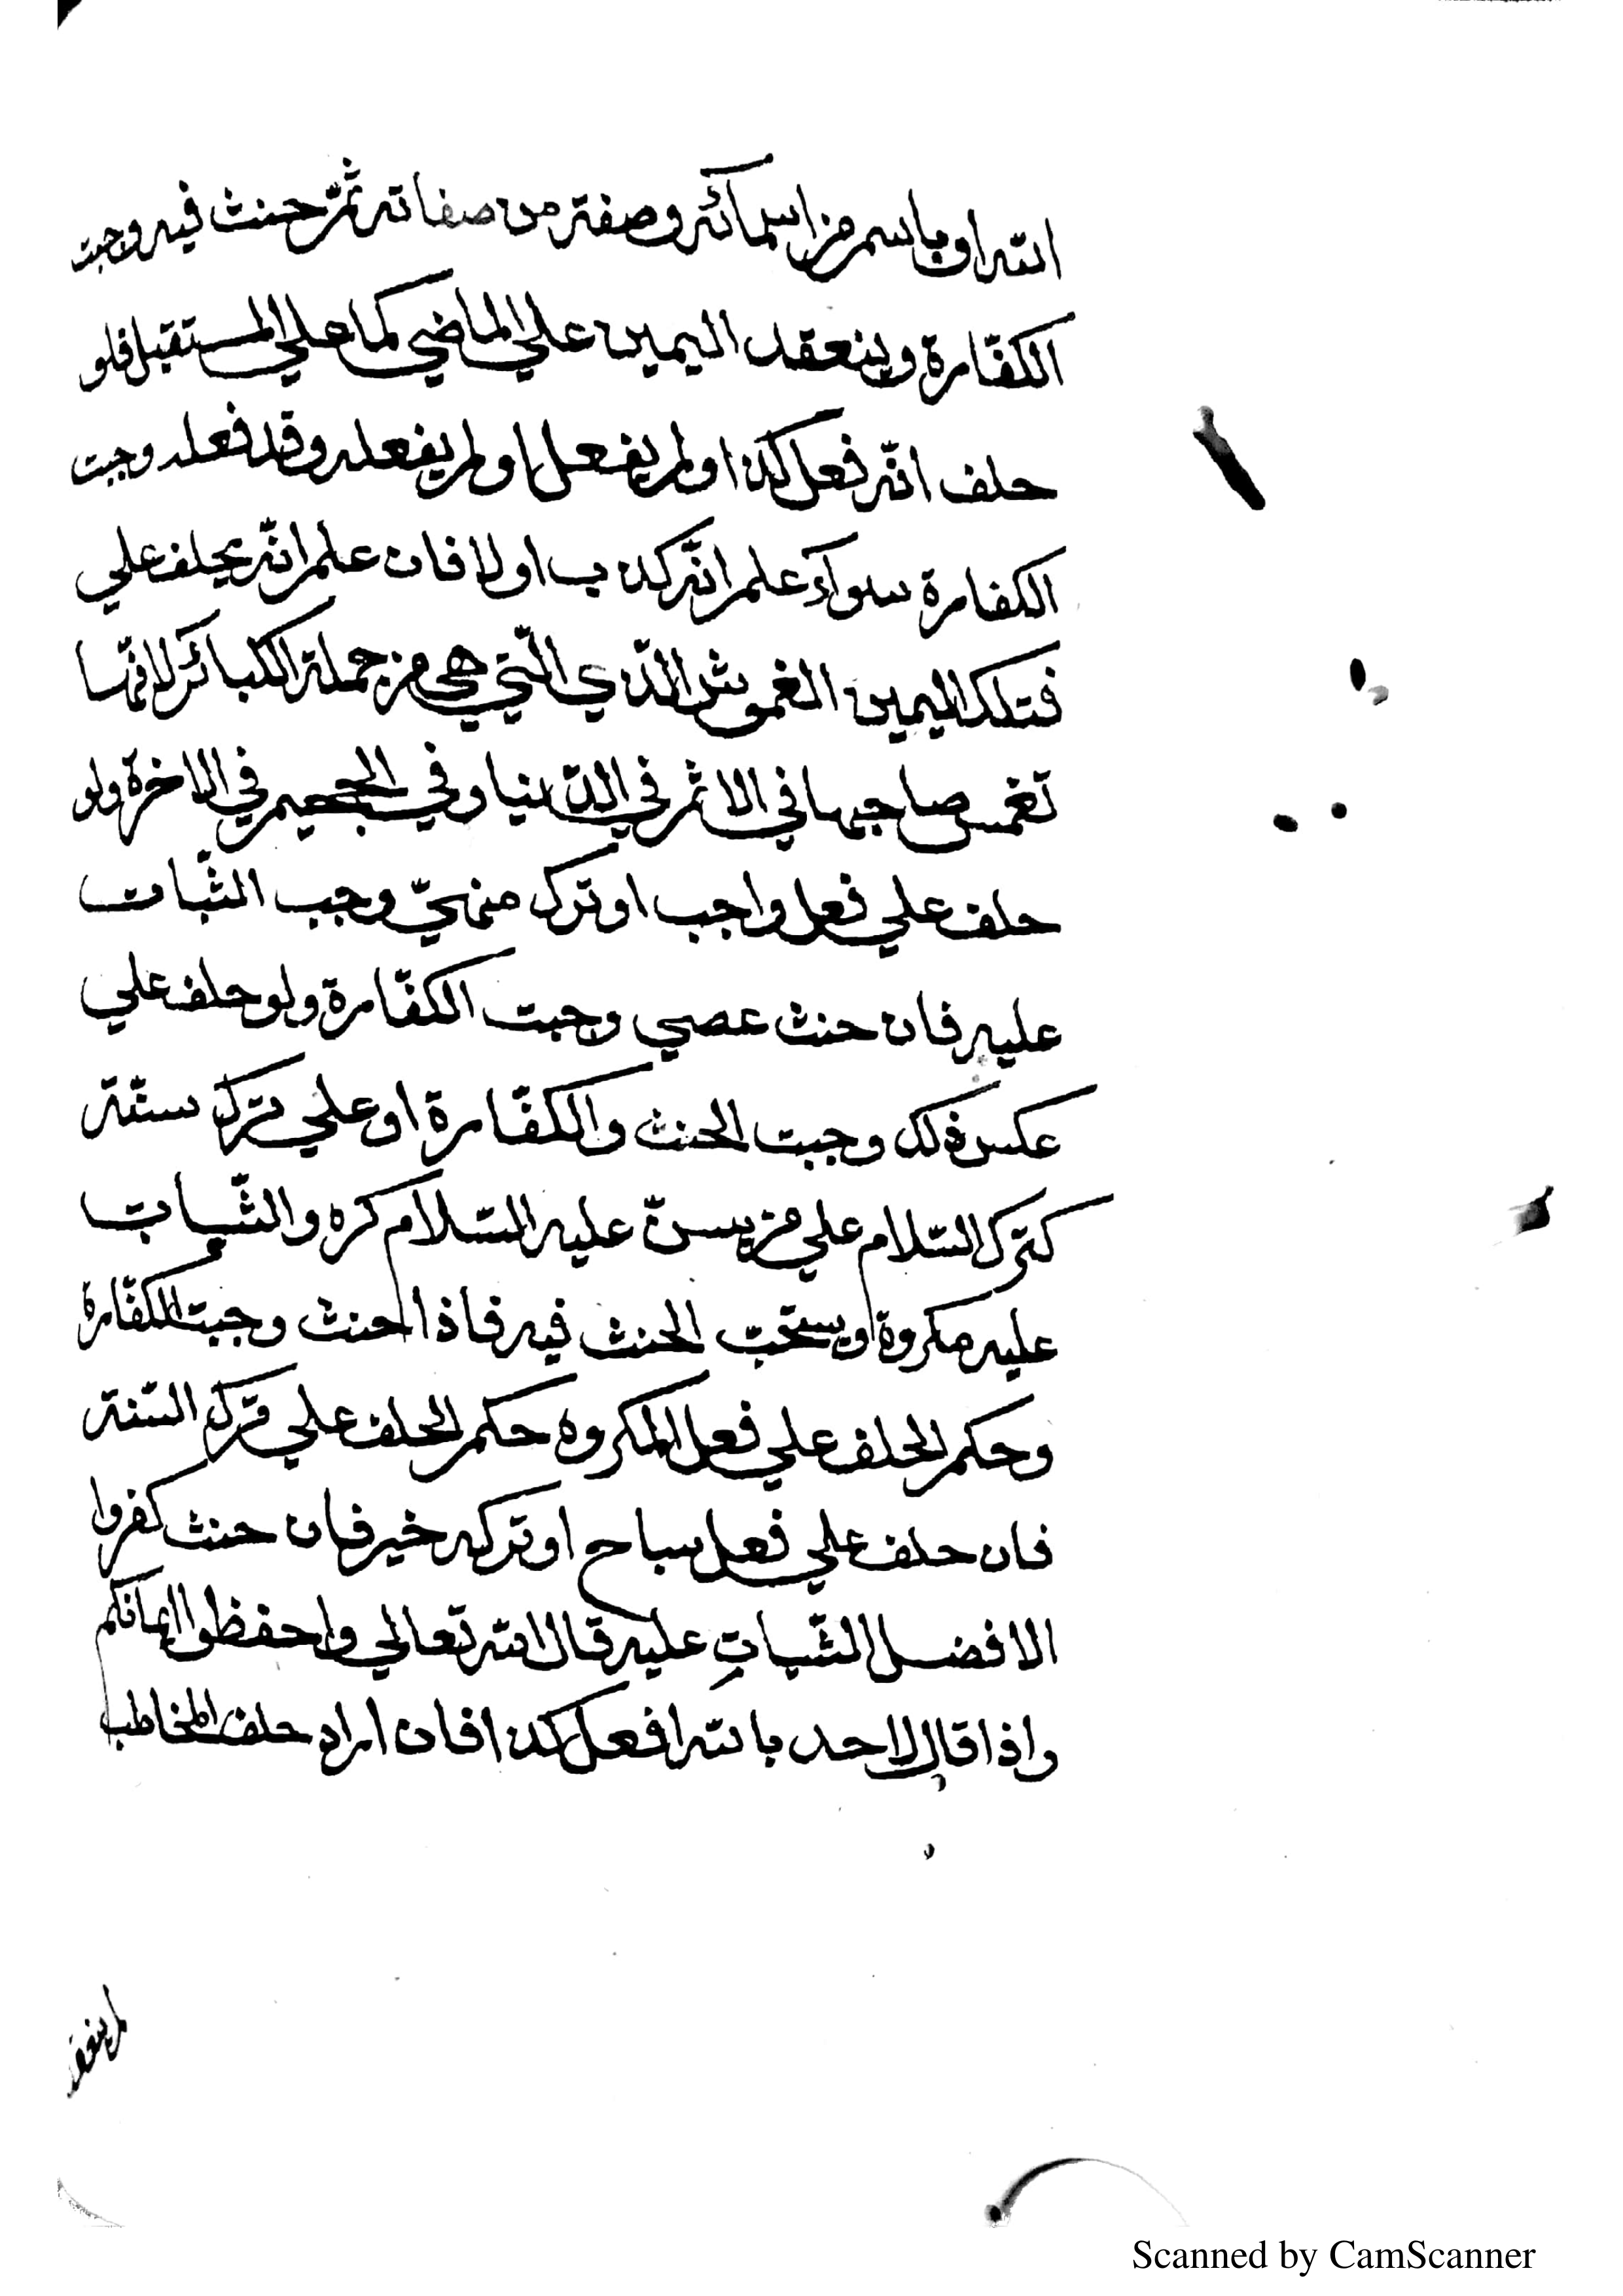 الله او باسم من اسمائه وصفة من صفاته ثمّ حنث فيه وجبت
الكفّارة وينعقد اليمين علي الماضي كما علي المستقبل فلو
حلف انّه فعل كذا او لم يفعل او لم يفعله وقد فعله وجبت
الكفارة سوآء علم انّه كذب او لا فان علم انّه يحلف علي
فتلك اليمين الغموش الذي الّتي هي من جملة الكبائر لانّها
تغمس صاحبها في الاثم في الدّنيا وفي الجحيم في الاخرة ولو
حلف علي فعل واجب او ترك منهيّ وجب الثّبات
عليه فان حنث عصي وجبت الكفّارة ولو حلف علي
عكس ذلك وجبت الحنث والكفّارة او علي ترك سنّة
كترك السّلام علي من يسنّ عليه السّلام كره والثّبات
عليه مكروة ويستحبّ الحنث فيه فاذا احنث وجبت الكفّارة
وحكم الحلف علي فعل المكروه حكم الحلف علي ترك السّنة
فان حلف علي فعل مباح او تركه خير فان حنث كفروا
الافضل الثّبات عليه قال الله تعالي واحفظوا ايمانكم
واذا قال لاحد بالله افعل كذا فان اراد حلف المخاطب
لم ينعقد
Scanned by CamScanner